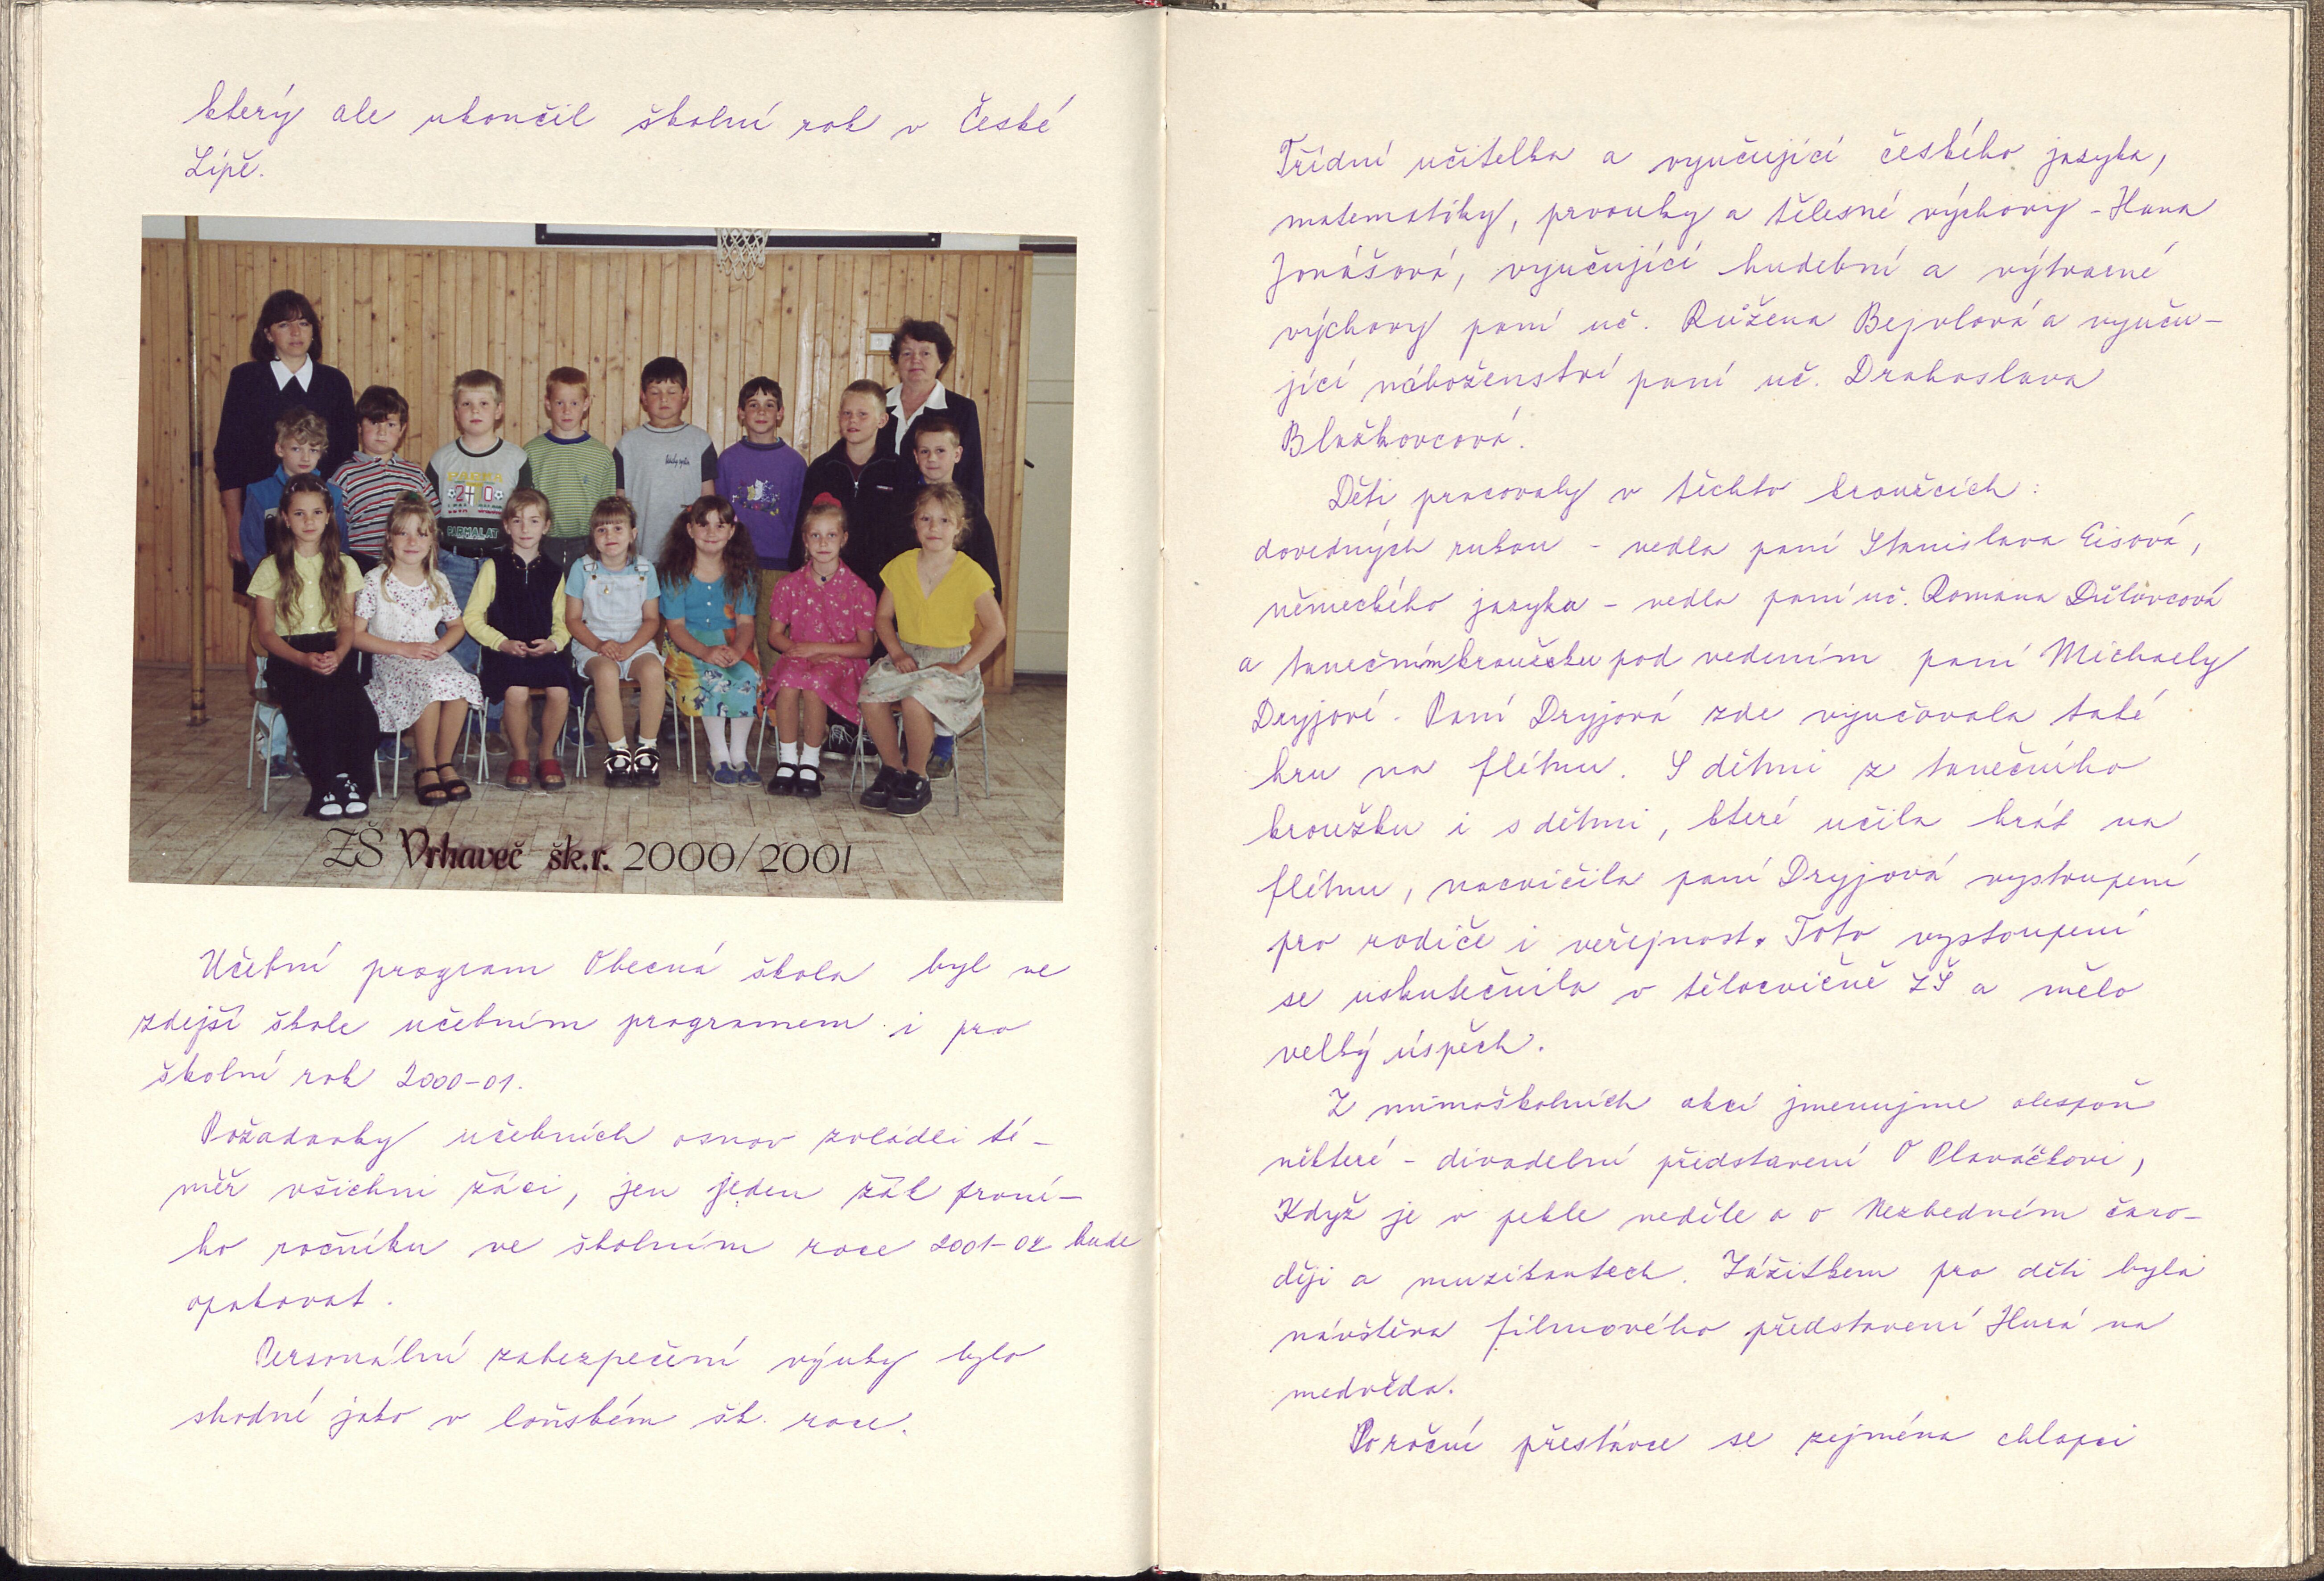 který ale ukončil školní rok v České
Lípě.
PARMALAT
ZŠ Vrhaveč šk.r. 2000/2001
Učební program Obecná škola byl ve
zdejší škole učebním programem i pro
školní rok 2000-01.
Požadavky učebních osnov zvládli té-
měř všichni žáci, jen jeden žák první-
ho ročníku ve školním roce 2001-02 bude
opakovat.
Personální zabezpečení výuky bylo
shodné jako v loňském šk. roce.
Třídní učitelka a vyučující českého jazyka,
matematiky, prvouky a tělesné výchovy - Hana
Jonášová, vyučující hudební a výtvarné
výchovy paní uč. Růžena Bejvlová a vyuču-
jící náboženství paní uč. Drahoslava
Blažkovcová.
Děti pracovaly v těchto kroužcích:
dovedných rukou - vedla paní Stanislava Eisová,
německého jazyka - vedla paní uč. Romana
a tanečním kroužku pod vedením paní Michaely
Dryjové. Paní Dryjová zde vyučovala také
hru na flétnu. S dětmi z tanečního
kroužku i s dětmi, které učila hrát na
flétnu, nacvičila paní Dryjová vystoupení
pro rodiče i veřejnost. Toto vystoupení
se uskutečnilo v tělocvičně ZŠ a mělo
velký úspěch.
Z mimoškolních akcí jmenujme alespoň
některé - divadelní představení O Plaváčkovi,
Když je v pekle neděle a o Nezbedném čaro-
ději a muzikantech. Zážitkem pro děti byla
návštěva filmového představení Hurá na
medvěda.
Po roční přestávce se zejména chlapci